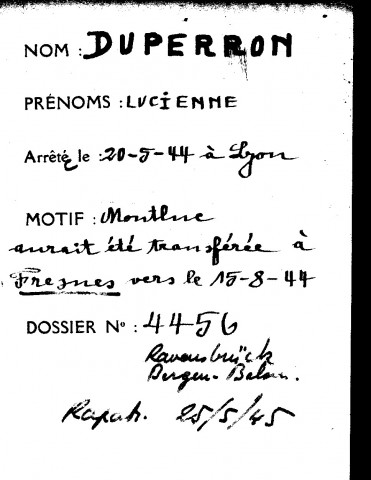 NOM : DUPERRON
PRÉNOMS : LUCIENNE
Arrêtée le : 20-5-44 à Lyon
MOTIF : Montluc
aurait été transférée à
Fresnes vers le 15-8-44
DOSSIER Nº : 4456
Ravensbrück
Bergen-Belsen.
Rapat. 25/5/45